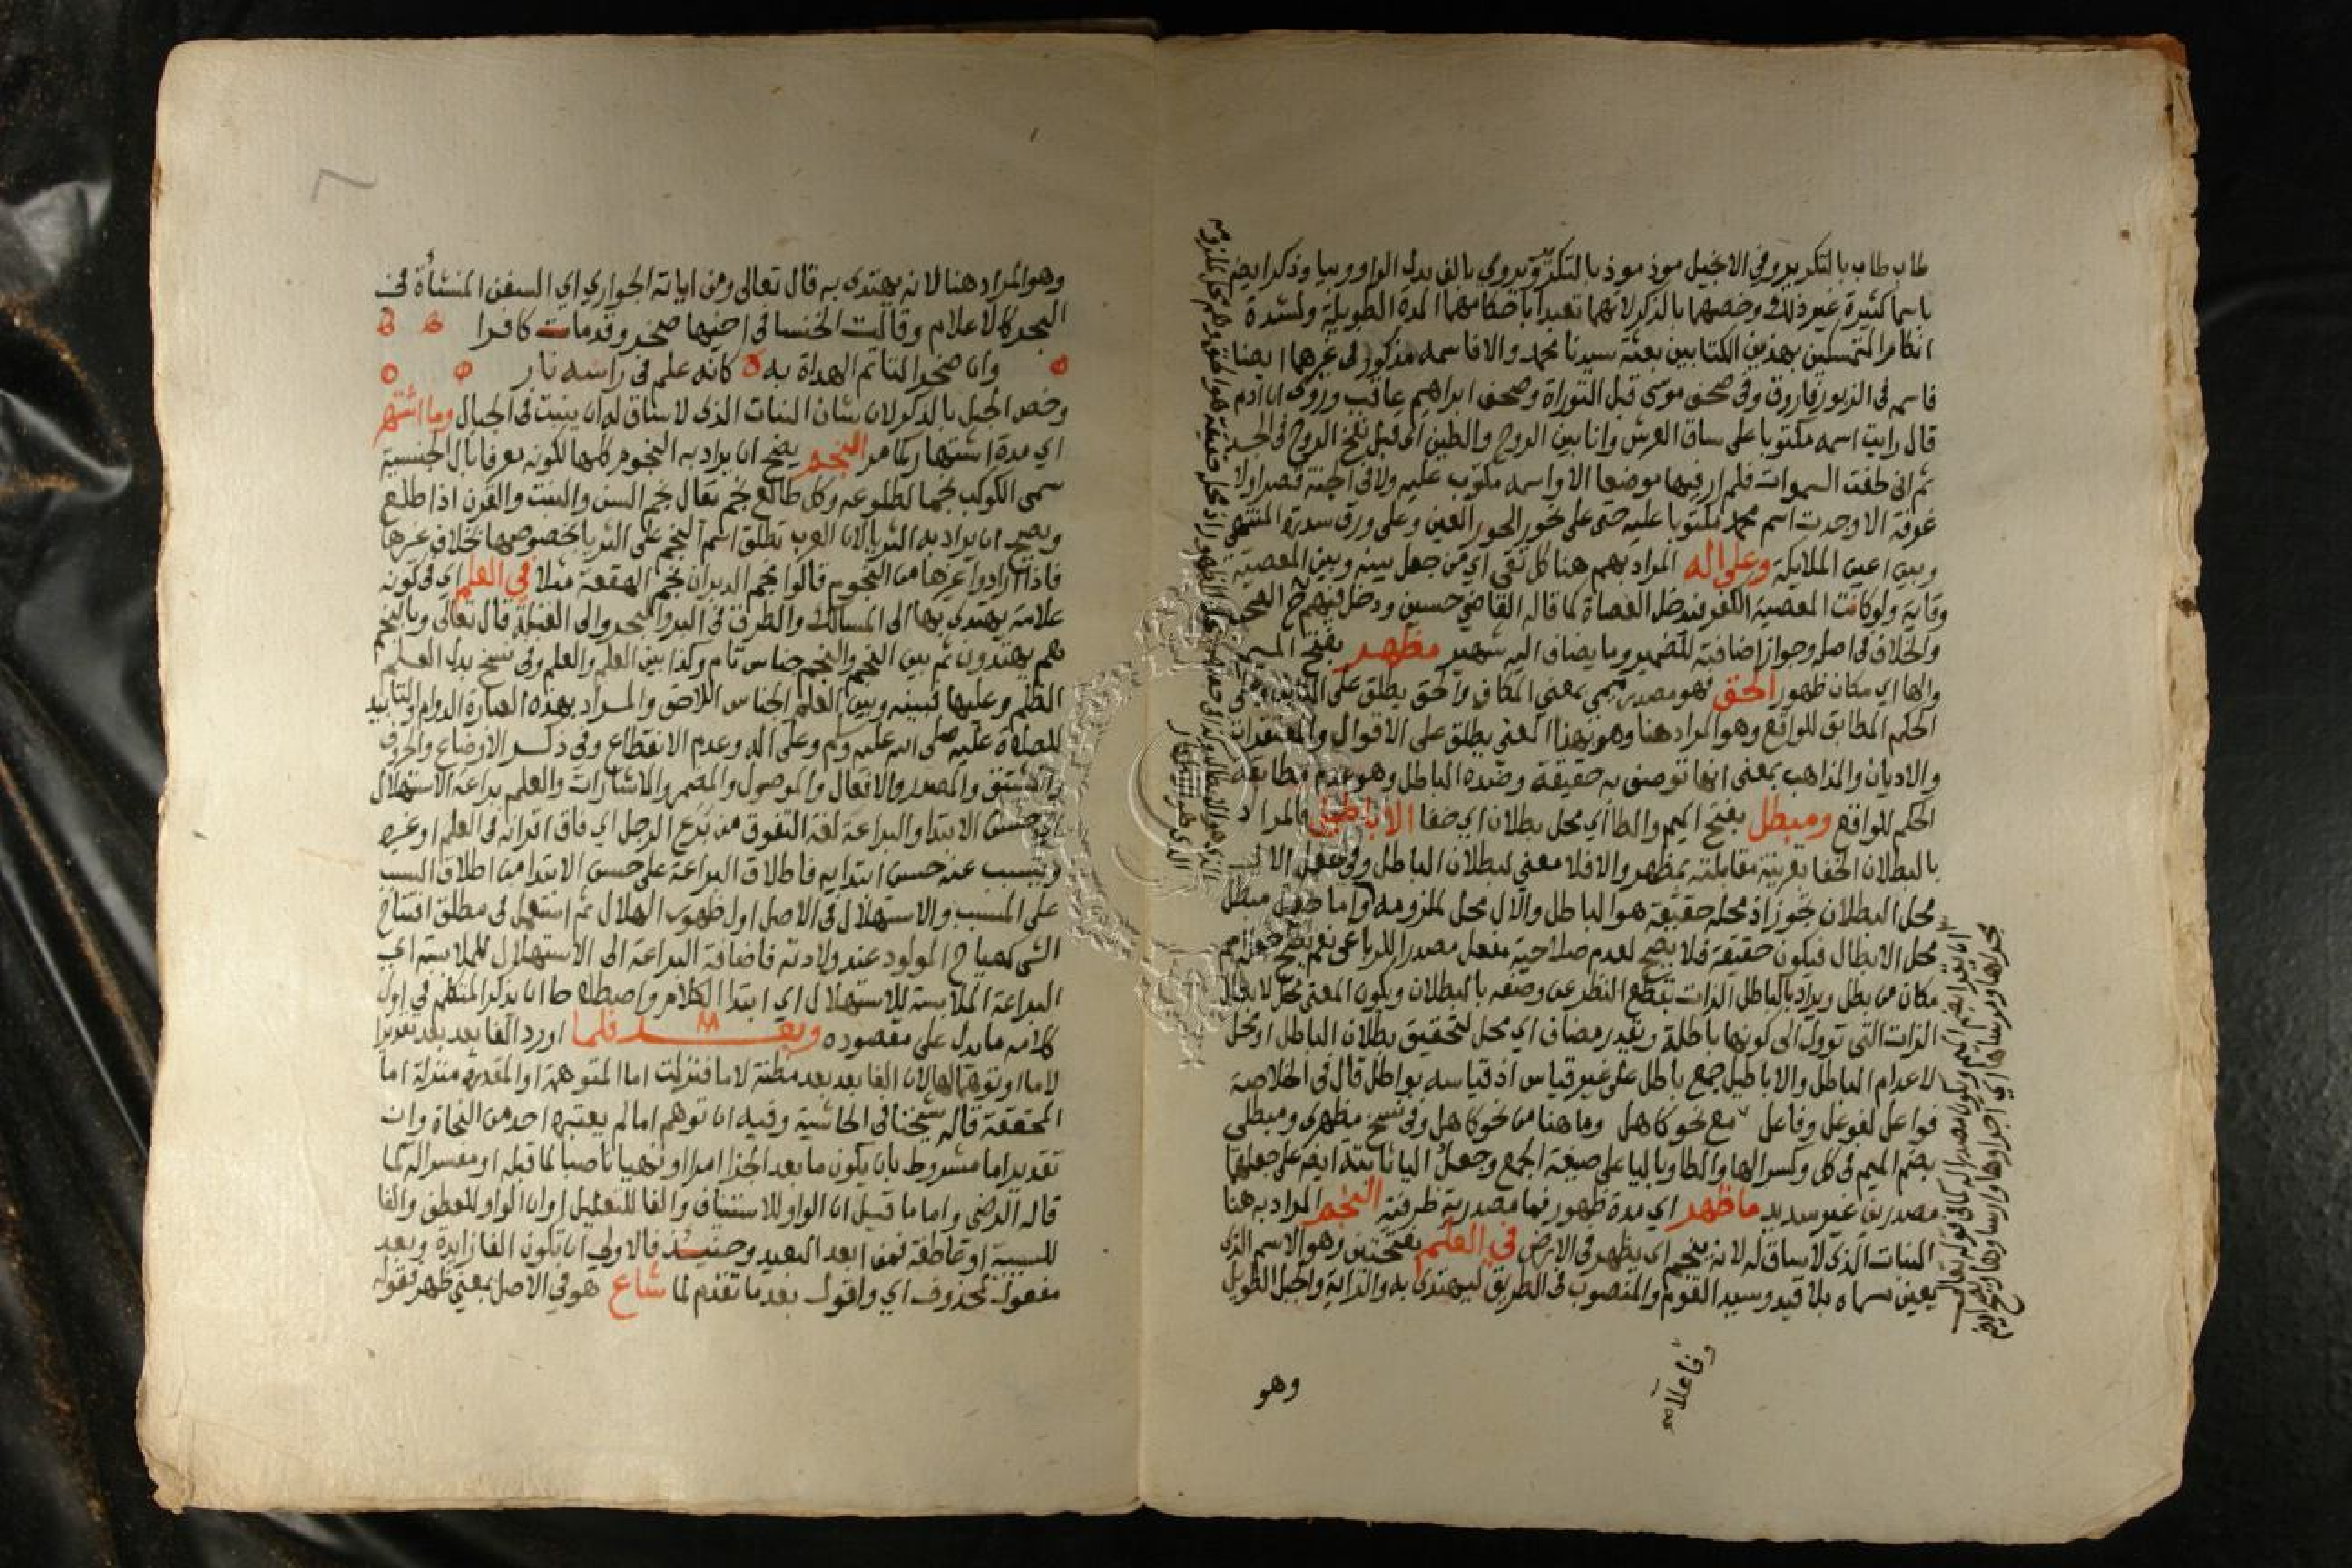 طاب طاب بالتكرير وفي الانجيل موذ موذ بالتكرير ويروي بالف بدل الواو وبيا وذكر ايضا
باسما كثيرة غير ذلك وخصهما بالذكر لانهما تعبدا باحكامهما المدة الطويلة ولشدة
انكار المتمسكين بهذين الكتابين بعثة سيدنا محمد والا فاسمه مذكور في غيرهما ايضا
فاسمه في الزبور فاروق وفي صحف موسى قبل التوراة وصحف ابراهيم عاقب وروي ان ادم
قال رايت اسمه مكتوبا على ساق العرش وانا بين الروح والطين اي قبل نفخ الروح في الجسد
ثم اني طفت السموات فلم ار فيها موضعا الا واسمه مكتوب عليه ولا في الجنة قصرا ولا
غرفة الا وجدت اسم محمد مكتوبا عليه حتى على نحور الحور العين وعلى ورق سدرة المنتهى
وبين اعين الملايكة وعلى اله المراد بهم هنا كل تقي اي من جعل بينه وبين المعصية
وقاية ولو كانت المعصية الكفر فيدخل العصاة كما قاله القاضي حسين ودخل فيهم ح الصحب
والخلاف في اصله وجواز اضافته للضمير وما يضاف اليه شهير مظهر بفتح الميم
والها اي مكان ظهور الحق فهو مصدر ميمي بمعني المكان والحق يطلق على
الحكم المطابق للواقع وهو المراد هنا وهو بهذا المعنى يطلق على الاقوال والمعتقدات
والاديان والمذاهب بمعنى انها توصف به حقيقة وضده الباطل وهو عدم مطابقة
الحكم للواقع ومبطل بفتح الميم والطا اي محل بطلان اي خفا الاباطيل والمراد
بالبطلان الخفا بقرينة مقابلته بمظهر والا فلا معني لبطلان الباطل وفي جعل الال
محل البطلان تجوز اذ محله حقيقة هو الباطل والال محل لملزومه واما جعل مبطل
محل الابطال فيكون حقيقة فلا يصح لعدم صلاحية مفعل مصدرا للرباعي نعم يصح
مكان من بطل ويراد بالباطل الذات بقطع النظر عن وصفه بالبطلان ويكون المعنى محل لابطال
الذات التي توول الى كونها باطلة وتقدير مضاف اي محل لتحقيق بطلان الباطل او محل
لاعدام الباطل والاباطيل جمع باطل على غير قياس اذ قياسه بواطل قال في الخلاصة
فواعل لفوعل وفاعل مع نحو كاهل وما هنا من نحو كاهل وفي نسخ مظهري ومبطلي
بضم الميم في كل وكسر الها والطا وباليا على صيغة الجمع وجعل اليا ثابتة ايضا على جعلهما
مصدرين غير سديد ما ظهر اي مدة ظهور فما مصدرية ظرفية النجم المراد به هنا
النبات الذي لا ساق له لانه ينجم اي يظهر في الارض في العلم بفتحتين وهو الاسم الذي
يعين مسماه بلا قيد وسيد القوم والمنصوب في الطريق ليهتدى به والراية والجبل الطويل
وفاعلا
وهو
وهو المراد هنا لانه يهتدى به قال تعالى ومن اياته الجواري اي السفن المنشأة في
البحر كالاعلام وقالت الخنسا في اخيها صخر وقد مات كافرا
وان صخرا لتاتم الهداة به كانه علم في راسه نار
وخص الجبل بالذكر لان شان النبات الذي لا ساق له ان ينبت في الجبال وما اشتهر
اي مدة اشتهار كما مر النجم يصح ان يراد به النجوم كلها لكونه معرفا بال الجنسية
سمى الكوكب نجما لطلوعه وكل طالع نجم يقال نجم السن والنبت والقرن اذا طلع
ويصح ان يراد به الثريا لان العرب تطلق اسم النجم على الثريا بخصوصها بخلاف غيرها
فاذا ارادوا غيرها من النجوم قالوا نجم الدبران نجم الهقعة مثلا في العلم اي في كونه
علامة يهتدى بها الى المسالك والطرق في البر والبحر والى القبلة قال تعالى وبالنجم
هم يهتدون ثم بين النجم والنجم جناس تام وكذا بين العلم والعلم وفي نسخ بدل العلم
الظلم وعليها فبينه وبين العلم الجناس اللاحق والمراد بهذه العبارة الدوام والتابيد
للصلاة عليه صلى الله عليه وسلم وعلى اله وعدم الانقطاع وفي ذكر الاوضاع والحروف
والمشتق والمصدر والافعال والموصول والمضمر والاشارات والعلم براعة الاستهلال
اي حسن الابتدا والبراعة لغة التفوق من برع الرجل اي فاق اقرانه في العلم او غيره
ويتسبب عنه حسن ابتدايه فاطلاق البراعة على حسن الابتدا من اطلاق السبب
على المسبب والاستهلال في الاصل اول ظهور الهلال ثم استعمل في مطلق افتتاح
الشي كصياح المولود عند ولادته فاضافة البراعة الى الاستهلال للملابسة اي
البراعة الملابسة للاستهلال اي ابتدا الكلام واصطلاحا ان يذكر المتكلم في اول
كلامه ما يدل على مقصوده وبعد فلما اورد الفا بعد بعد تقديرا
لاما او توهما لها لان الفا بعد بعد مظنة لاما فنزلت اما المتوهمة او المقدرة منزلة اما
المحققة قاله شيخنا في الحاشية وفيه ان توهم اما لم يعتبره احد من النحاة وان
تقدير اما مشروط بان يكون ما بعد الجزا امرا او نهيا ناصبا لما قبله او مفسرا له كما
قاله الرضي واما ما قيل ان الواو للاستيناف والفا للتعليل او ان الواو للعطف والفا
للسببية او عاطفة فمن ابعد البعيد وحينيذ فالاولى ان تكون الفا زايدة وبعد
مفعول لمحذوف اي واقول بعد ما تقدم لما شاع هو في الاصل بمعني ظهر فقوله